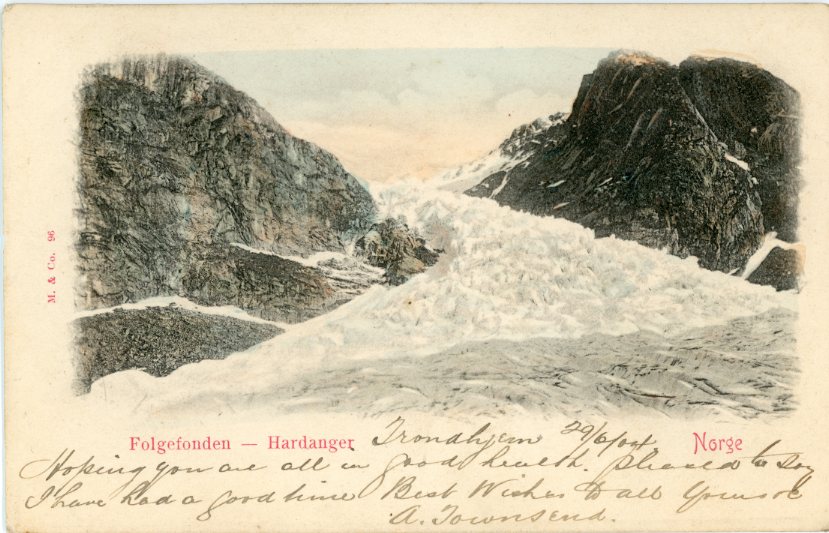 M. & Co. 96
Folgefonden — Hardanger Trondhjem 29/6/04 Norge
Hoping you are all in good health. Pleased to say
I have had a good time Best Wishes to all Yours
A. Townsend.